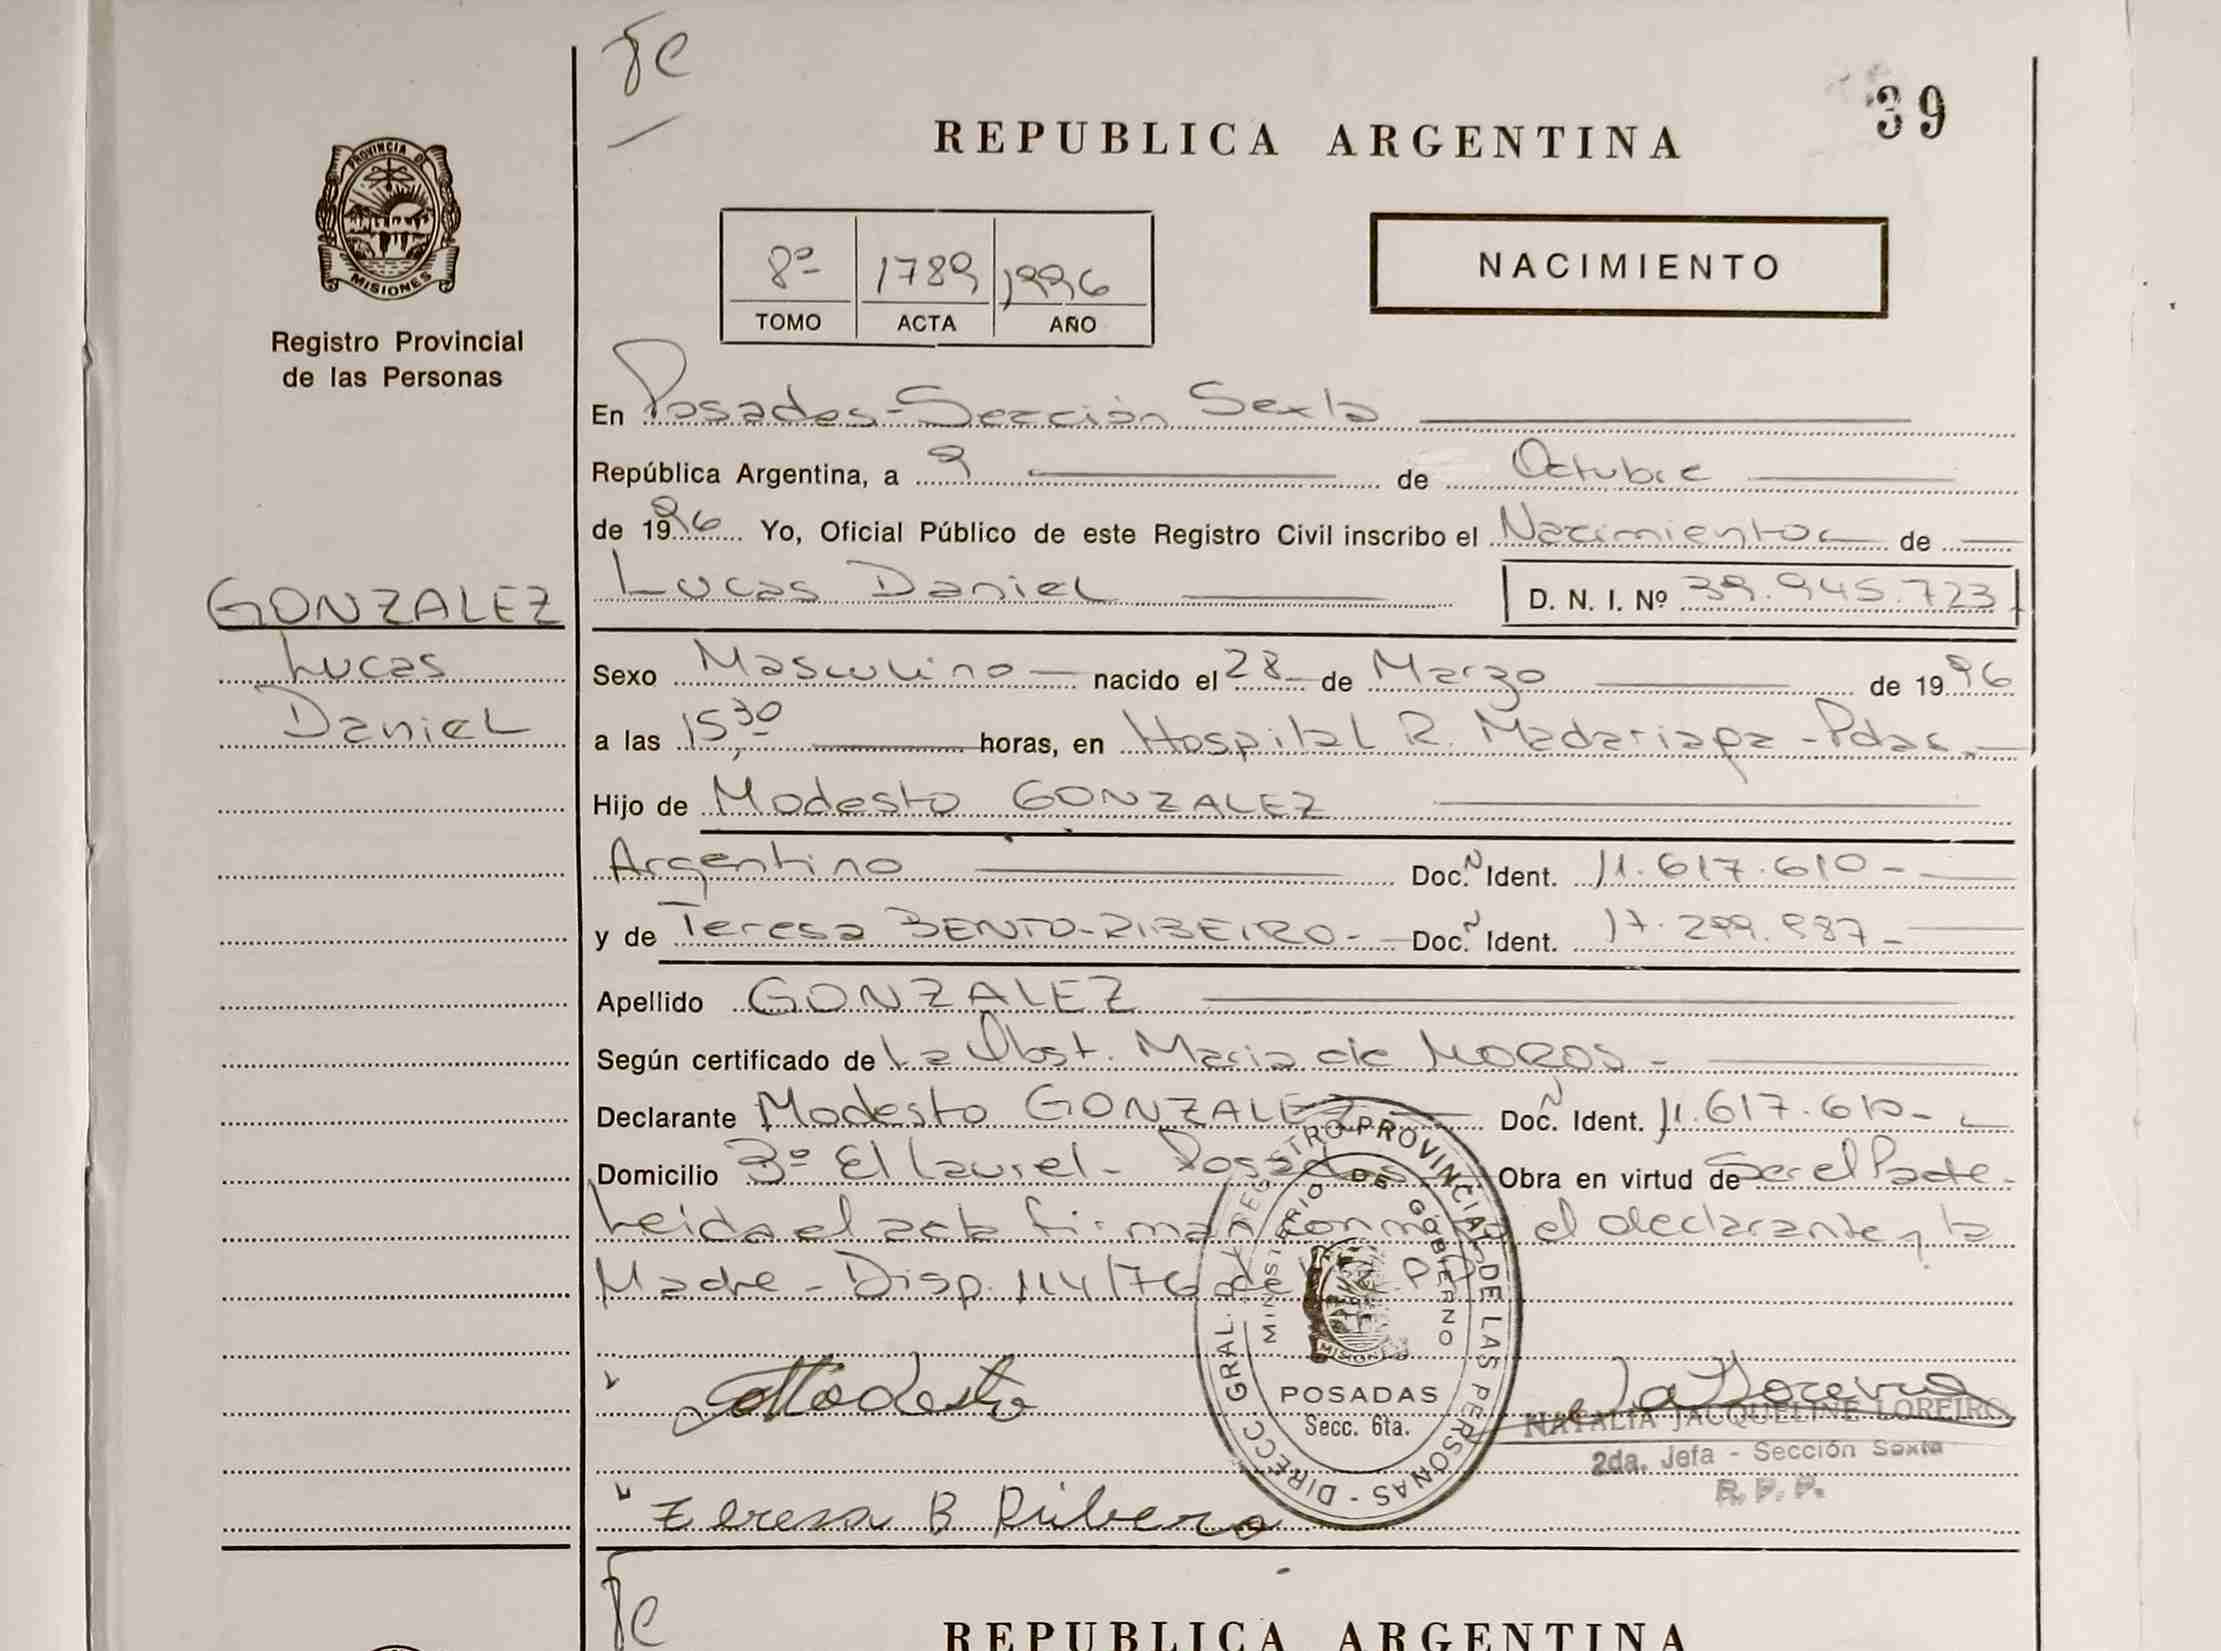 fc
39
REPUBLICA ARGENTINA
PROVINCIA DE
MISIONES
Registro Provincial
de las Personas
8º 1789 1996
TOMO ACTA AÑO
NACIMIENTO
En Posadas-Sección Sexta
República Argentina, a 9 de Octubre
de 1996 Yo, Oficial Público de este Registro Civil inscribo el Nacimiento de
GONZALEZ
Lucas
Daniel
Lucas Daniel D. N. I. Nº 39.945.723
Sexo Masculino nacido el 28 de Marzo de 1996
a las 15,30 horas, en Hospital R. Madariaga - Pdas.
Hijo de Modesto GONZALEZ
Argentino Doc. N Ident. 11.617.610-
y de Teresa BENTO-RIBEIRO- Doc. N Ident. 17.299.987-
Apellido GONZALEZ
Según certificado de La Obst. Maria de MOROS-
Declarante Modesto GONZALEZ Doc. N Ident. 11.617.610-
Domicilio Bº El Laurel- Posadas Obra en virtud de Ser el Padre-
Leida el acta firman conmigo el declarante y la
Madre - Disp. 114/76 de
DIRECC GRAL. REGISTRO PROVINCIAL DE LAS PERSONAS -
MINISTERIO DE GOBIERNO
MISIONES
POSADAS
Secc. 6ta.
Modesto
NATALIA JACQUELINE LOREIRO
2da. Jefa - Sección Sexta
R. P. P.
Teresa B Ribero
fc
REPUBLICA ARGENTINA